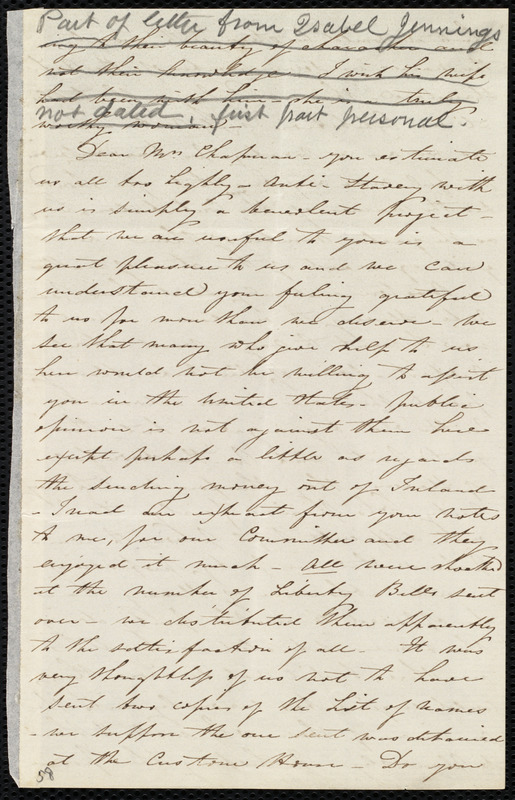 Part of letter from Isabel Jennings
ing to their beauty of character and
not their knowledge - I wish his wife
had been with him - she is a truly
not dated, first part personal.
worthy woman -
Dear Mrs Chapman - you estimate
us all too highly - Anti-Slavery with
us is simply a benevolent project -
that we are useful to you is a
great pleasure to us and we can
understand your feeling grateful
to us for more than we deserve - We
see that many who give help to us
here would not be willing to assist
you in the United States - public
opinion is not against them here
except perhaps a little as regards
the sending money out of Ireland
- I read an extract from your notes
to me, for our Committee and they
enjoyed it much - All were shocked
at the number of Liberty Bells sent
over - we distributed them apparently
to the satisfaction of all - It was
very thoughtless of us not to have
sent two copies of the List of names
- we suppose the one sent was detained
at the Custom House - Do you
58